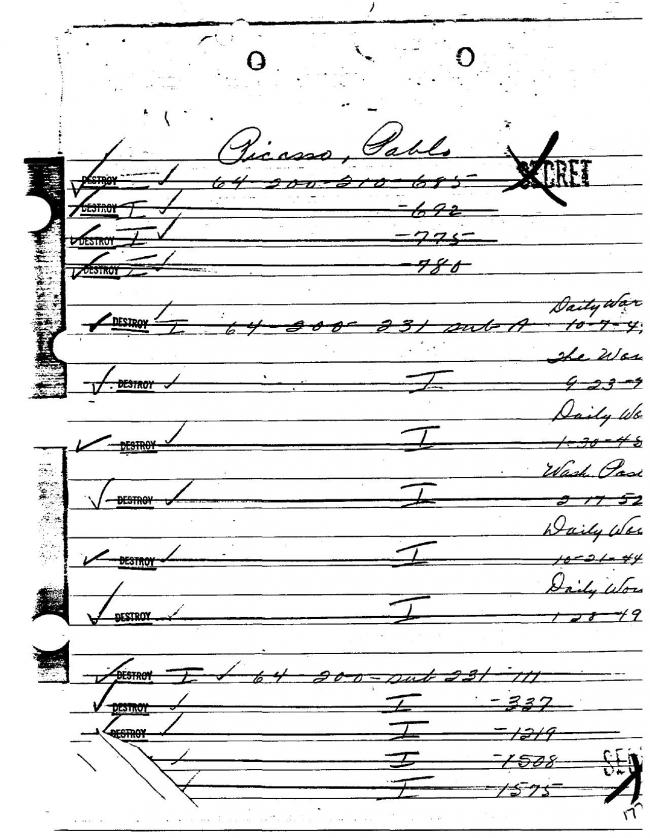 Picasso, Pablo
SECRET
DESTROY 64-200-210-685
DESTROY I -692
DESTROY I -775
DESTROY I -780
Daily Wor
DESTROY I 64-200-231 sub A 10-7-4
The Wor
DESTROY I 9-23-4
Daily Wo
DESTROY I 1-30-45
Wash. Pos
DESTROY I 2-17-52
Daily Wor
DESTROY I 10-21-44
Daily Wor
DESTROY I 1-28-49
DESTROY I 64-200-sub 231-111
DESTROY I -337
DESTROY I -1219
I -1508
I -1575